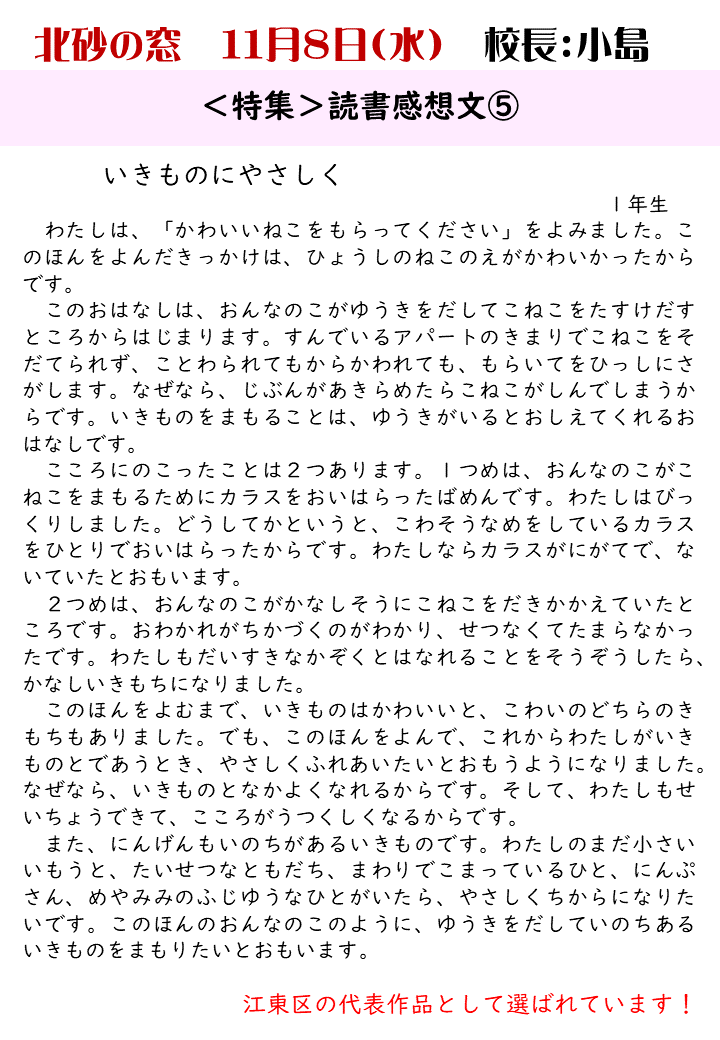 北砂の窓　11月8日(水)　校長:小島
＜特集＞読書感想文⑤
いきものにやさしく
１年生
わたしは、「かわいいねこをもらってください」をよみました。こ
のほんをよんだきっかけは、ひょうしのねこのえがかわいかったから
です。
このおはなしは、おんなのこがゆうきをだしてこねこをたすけだす
ところからはじまります。すんでいるアパートのきまりでこねこをそ
だてられず、ことわられてもからかわれても、もらいてをひっしにさ
がします。なぜなら、じぶんがあきらめたらこねこがしんでしまうか
らです。いきものをまもることは、ゆうきがいるとおしえてくれるお
はなしです。
こころにのこったことは２つあります。１つめは、おんなのこがこ
ねこをまもるためにカラスをおいはらったばめんです。わたしはびっ
くりしました。どうしてかというと、こわそうなめをしているカラス
をひとりでおいはらったからです。わたしならカラスがにがてで、な
いていたとおもいます。
２つめは、おんなのこがかなしそうにこねこをだきかかえていたと
ころです。おわかれがちかづくのがわかり、せつなくてたまらなかっ
たです。わたしもだいすきなかぞくとはなれることをそうぞうしたら、
かなしいきもちになりました。
このほんをよむまで、いきものはかわいいと、こわいのどちらのき
もちもありました。でも、このほんをよんで、これからわたしがいき
ものとであうとき、やさしくふれあいたいとおもうようになりました。
なぜなら、いきものとなかよくなれるからです。そして、わたしもせ
いちょうできて、こころがうつくしくなるからです。
また、にんげんもいのちがあるいきものです。わたしのまだ小さい
いもうと、たいせつなともだち、まわりでこまっているひと、にんぷ
さん、めやみみのふじゆうなひとがいたら、やさしくちからになりた
いです。このほんのおんなのこのように、ゆうきをだしていのちある
いきものをまもりたいとおもいます。
江東区の代表作品として選ばれています！